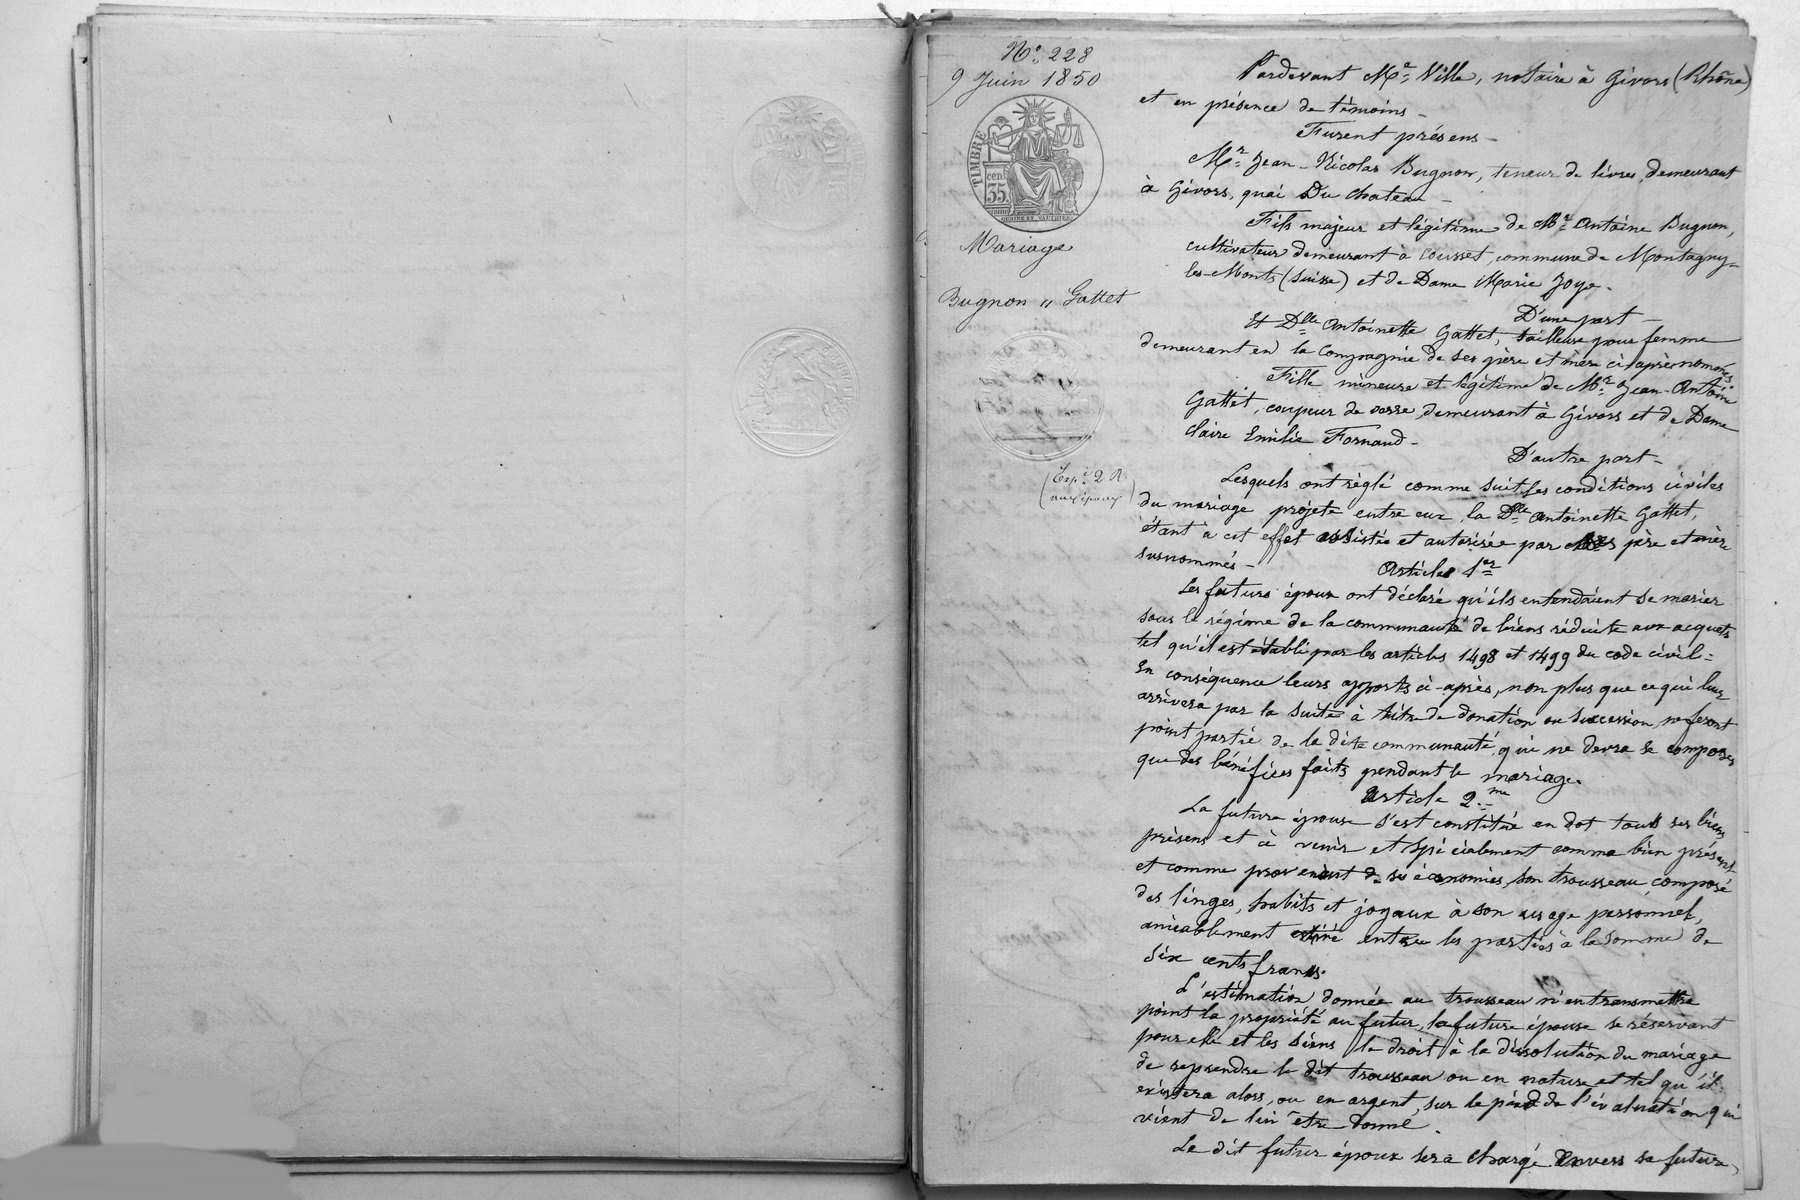 N° 228
9 Juin 1850
TIMBRE
cen. 35.
Mariage
Bugnon " Gattet
Expé 2 R
aux époux
Pardevant Me Ville, notaire à Givors (Rhône)
et en présence de témoins -
Furent présens -
Mr Jean-Nicolas Bugnon, teneur de livres, demeurant
à Givors, quai Du Chateau -
Fils majeur et légitime de Mr Antoine Bugnon,
cultivateur demeurant à Cousset, commune de Montagny-
les-Monts (Suisse) et de Dame Marie Joye.
D'une part -
Et Dlle Antoinette Gattet, tailleuse pour femme
demeurant en la Compagnie de ses père et mère ci après nommés.
Fille mineure et légitime de Mr Jean-Antoine
Gattet, coupeur de verre, demeurant à Givors et de Dame
Claire Emilie Fornaud -
D'autre part -
Lesquels ont règlé comme suit les conditions civiles
du mariage projeté entre eux, la Dlle Antoinette Gattet,
étant à cet effet assistée et autorisée par ses père et mère
susnommés -
Article 1er
Les futurs époux ont déclaré qu'ils entendaient se marier
sous le régime de la communauté de biens réduite aux acquets
tel qu'il est établi par les articles 1498 et 1499 du code civil :
En conséquence leurs apports ci-après, non plus que ce qui leur
arrivera par la suite à titre de donation ou succession, ne feront
point partie de la dite communauté, qui ne devra se composer
que des bénéfices faits pendant le mariage.
Article 2.me
La future épouse s'est constitué en dot tous ses biens
présens et à venir et spécialement comme bien présent
et comme provenant de ses économies, son trousseau, composé
des linges, habits et joyaux à son usage personnel,
amiablement estimé entre les parties à la somme de
six cents francs.
L'estimation donnée au trousseau n'en transmettra
point la propriété au futur, la future épouse se réservant
pour elle et les siens le droit à la dissolution du mariage
de reprendre le dit trousseau ou en nature et tel qu'il
existera alors, ou en argent, sur le pied de l'évaluation qui
vient de lui être donné.
Le dit futur époux sera chargé envers sa future,